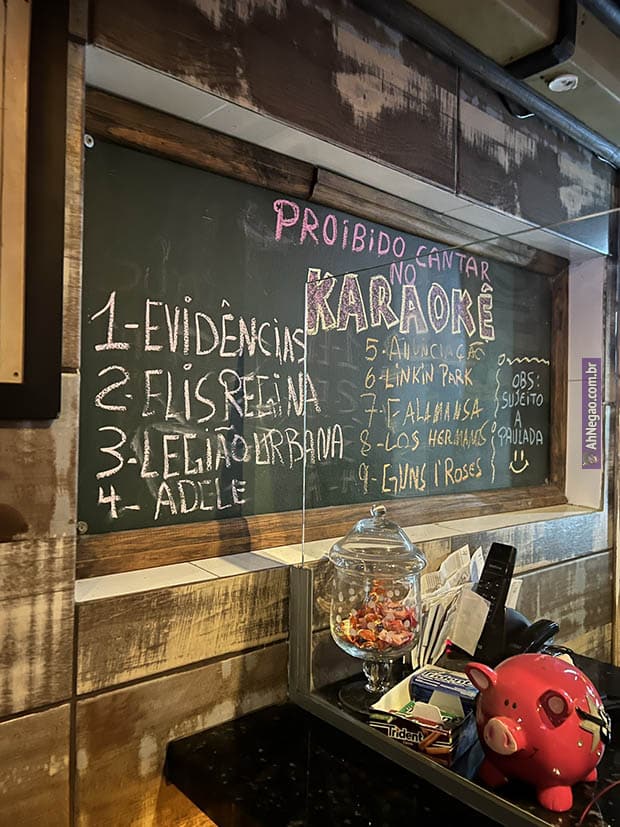 PROIBIDO CANTAR
NO
KARAOKÊ
1-EVIDÊNCIAS
2-ELIS REGINA
3-LEGIÃO URBANA
4- ADELE
5-ANUNCIAÇÃO
6-LINKIN PARK
7-FALAMANSA
8-LOS HERMANOS
9-GUNS I'ROSES
OBS:
SUJEITO
A
PAULADA
AhNegao.com.br
Trident